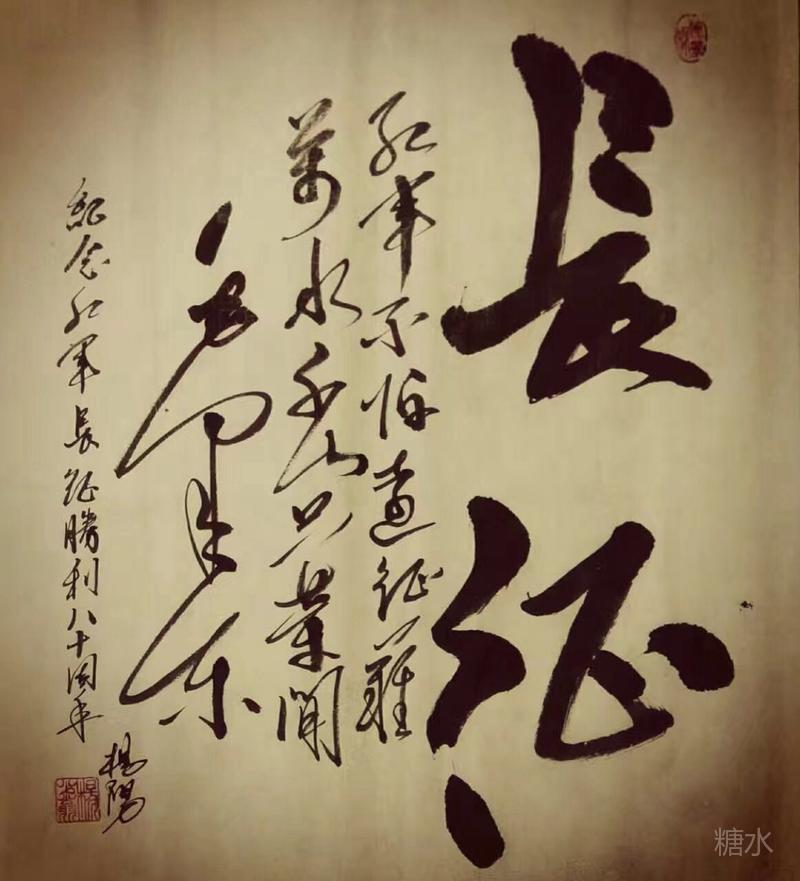 長征
紅軍不怕遠征難
萬水千山只等閒
毛澤东
紀念红軍長征勝利八十周年
楊陽
糖水